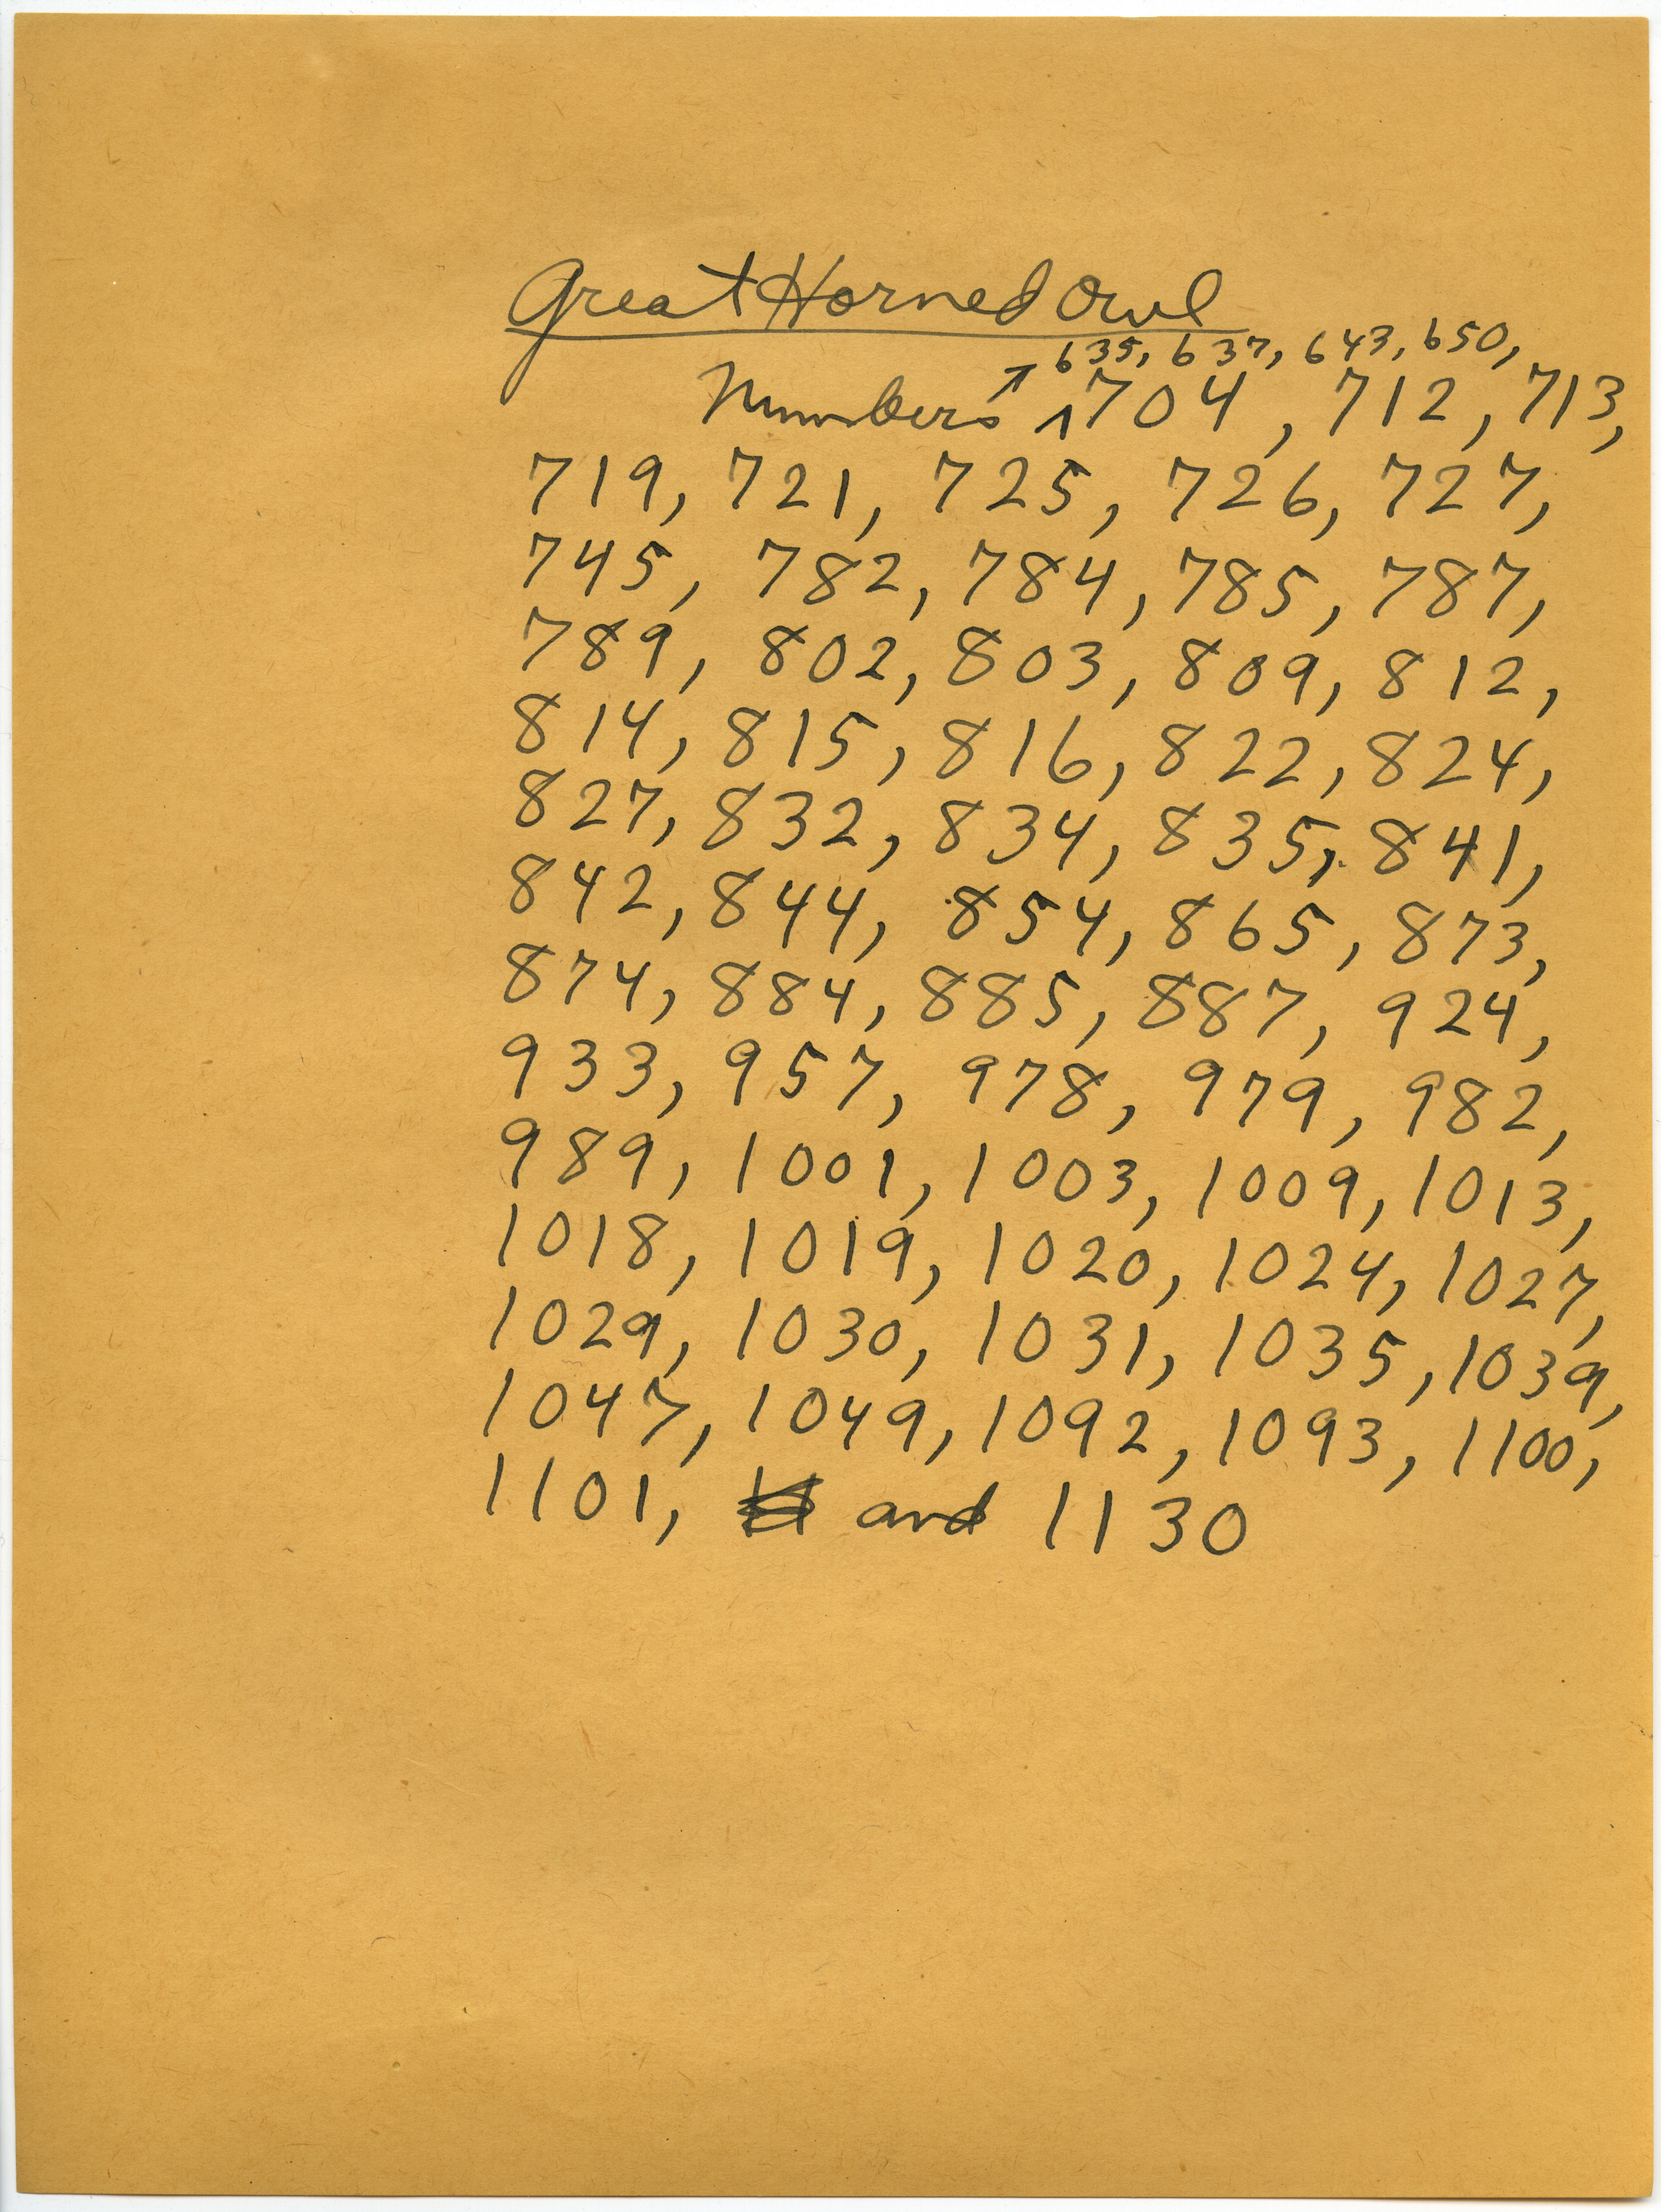 Great Horned Owl
635, 637, 643, 650,
Numbers 704, 712, 713,
719, 721, 725, 726, 727,
745, 782, 784, 785, 787,
789, 802, 803, 809, 812,
814, 815, 816, 822, 824,
827, 832, 834, 835, 841,
842, 844, 854, 865, 873,
874, 884, 885, 887, 924,
933, 957, 978, 979, 982,
989, 1001, 1003, 1009, 1013,
1018, 1019, 1020, 1024, 1027,
1029, 1030, 1031, 1035, 1039,
1047, 1049, 1092, 1093, 1100,
1101, and 1130